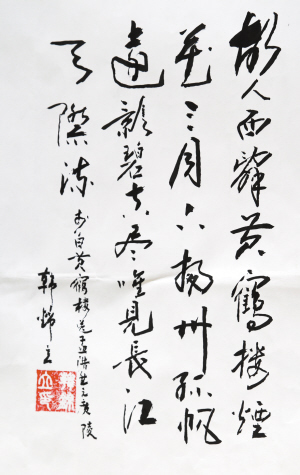 故人西辭黄鶴樓煙
花三月下揚州孤帆
遠影碧空尽唯見長江
天際流
李白黄鶴樓送孟浩然之廣陵
韓